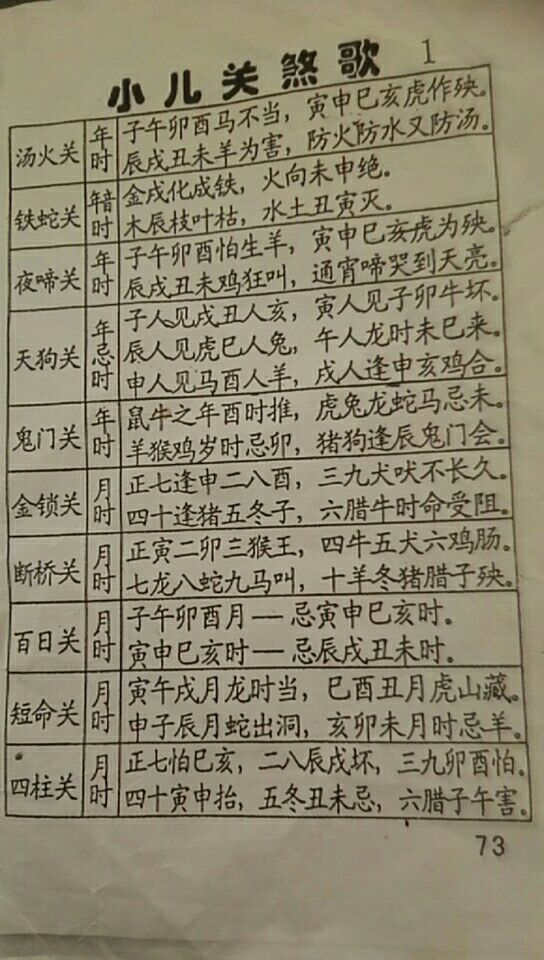 小儿关煞歌 1
汤火关 年时 子午卯酉马不当，寅申巳亥虎作殃。
辰戌丑未羊为害，防火防水又防汤。
铁蛇关 年音时 金戌化成铁，火向未申绝。
木辰枝叶枯，水土丑寅灭。
夜啼关 年时 子午卯酉怕生羊，寅申巳亥虎为殃。
辰戌丑未鸡狂叫，通宵啼哭到天亮。
天狗关 年忌时 子人见戌丑人亥，寅人见子卯牛坏。
辰人见虎巳人兔，午人龙时未巳来。
申人见马酉人羊，戌人逢申亥鸡合。
鬼门关 年时 鼠牛之年酉时推，虎兔龙蛇马忌未。
羊猴鸡岁时忌卯，猪狗逢辰鬼门会。
金锁关 月时 正七逢申二八酉，三九犬吠不长久。
四十逢猪五冬子，六腊牛时命受阻。
断桥关 月时 正寅二卯三猴王，四牛五犬六鸡肠。
七龙八蛇九马叫，十羊冬猪腊子殃。
百日关 月时 子午卯酉月—忌寅申巳亥时.
寅申巳亥时—忌辰戌丑未时.
短命关 月时 寅午戌月龙时当，巳酉丑月虎山藏。
申子辰月蛇出洞，亥卯未月时忌羊。
四柱关 月时 正七怕巳亥，二八辰戌坏，三九卯酉怕。
四十寅申抬，五冬丑未忌，六腊子午害。
73